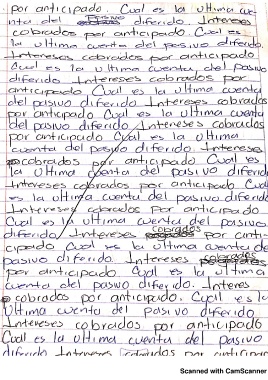 por anticipado. Cual es la ultima cue
nta del pasivo diferido. Intereses
cobrados por anticipado. Cual es
la ultima cuenta del pasivo diferido.
Intereses cobrados por anticipado
Cual es la ultima cuenta del pasivo
diferido. Intereses cobrados por
anticipado. Cual es la ultima cuenta
del pasivo diferido. Intereses cobrados
por anticipado Cual es la ultima cuenta
del pasivo diferido. Intereses cobrados
por anticipado Cual es la ultima
cuenta del pasivo diferido. Intereses
cobrados por anticipado Cual es
la ultima cuenta del pasivo diferido
Intereses cobrados por anticipado Cual
es la ultima cuenta del pasivo diferido
Intereses cobrados por anticipado
Cual es la ultima cuenta del pasivo
diferido. Intereses cobrados por anti
cipado Cual es la ultima cuenta del
pasivo diferido. Intereses cobrados
por anticipado Cual es la ultima
cuenta del pasivo diferido. Interes
cobrados por anticipado. Cual es la
Ultima cuenta del pasivo diferido
Intereses cobrados por anticipado
Cual es la ultima cuenta del pasivo
diferido Intereses cobrados por anticipar
Scanned with CamScanner